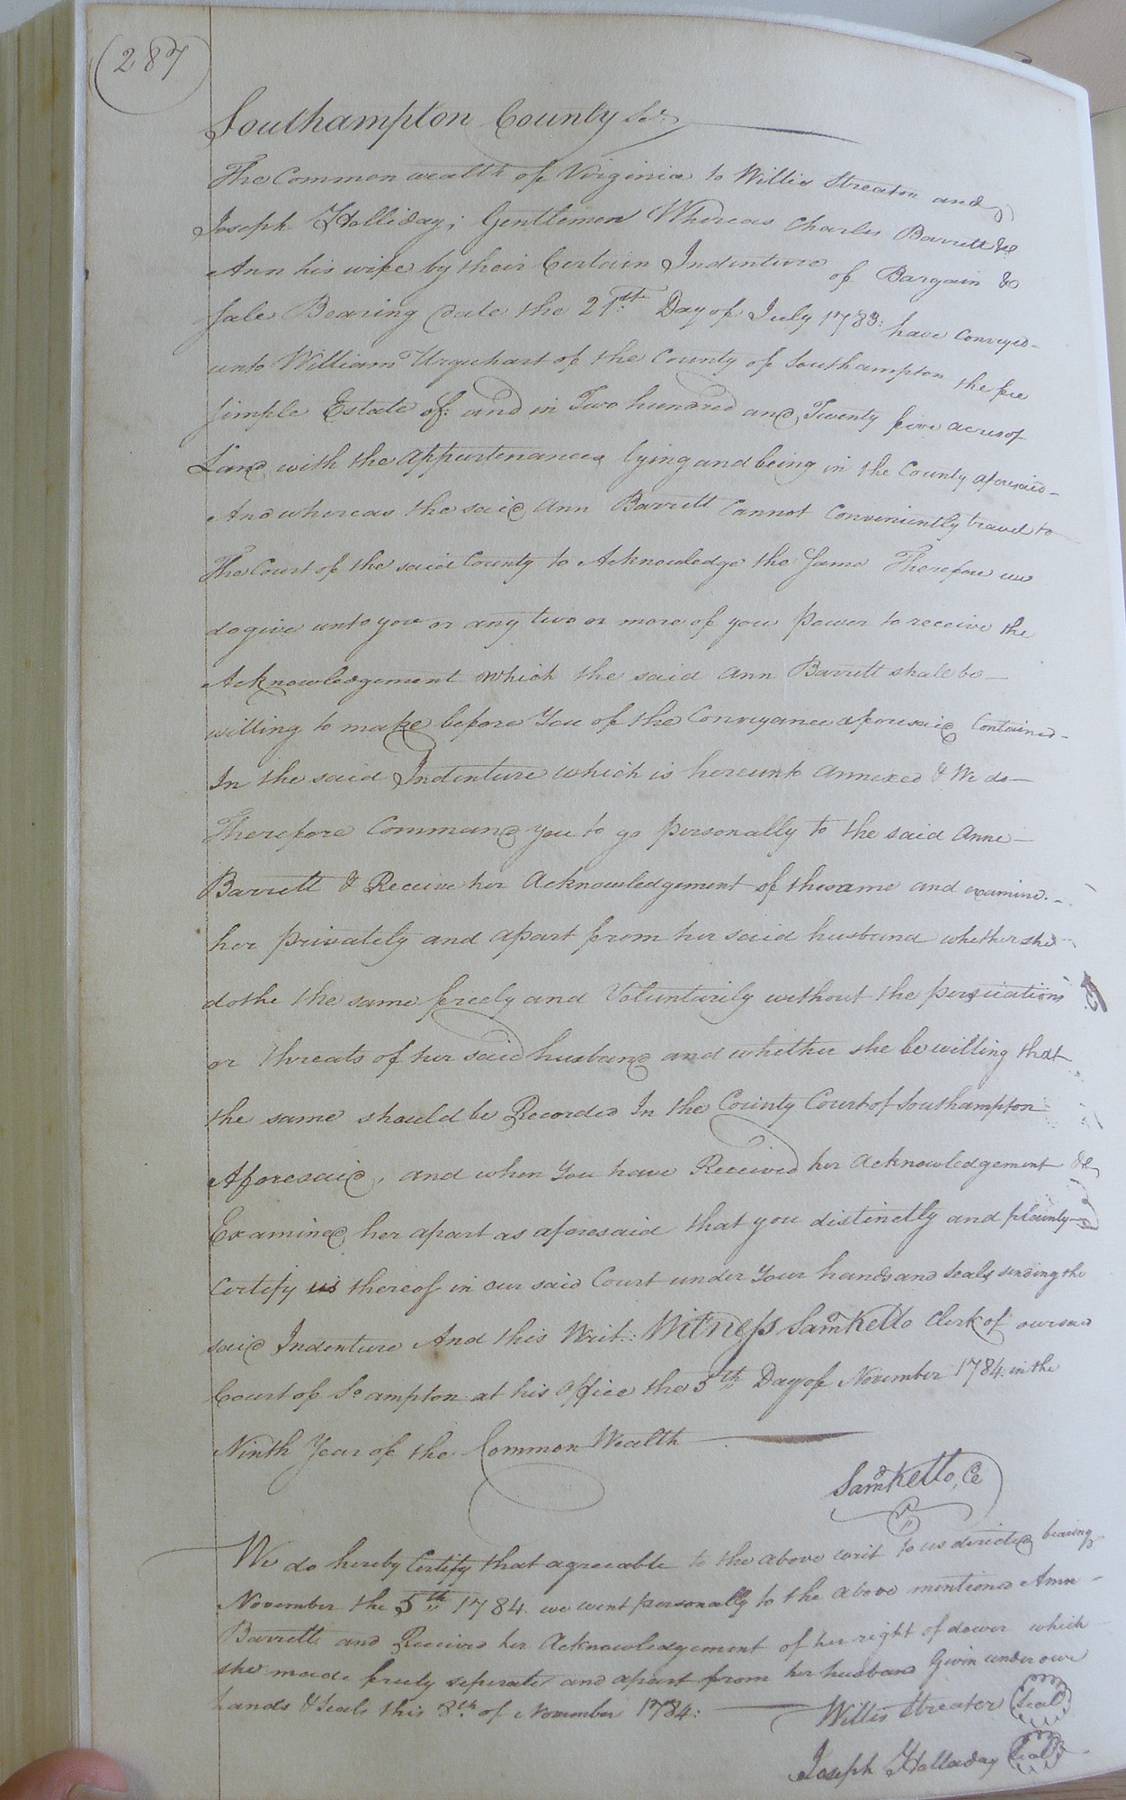 287
Southampton County Sct
The Common wealth of Virginia to Willis Streator and
Joseph Holliday; Gentlemen Whereas Charles Barrett &
Ann his wife by their Certain Indenture of Bargain &
Sale Bearing date the 21st Day of July 1783: have Conveyed
unto William Urquhart of the County of Southampton the fee
simple Estate of: and in Two hundred and Twenty five acres of
Land with the appurtenances lying and being in the County aforesaid
And whereas the said Ann Barrett Cannot Conveniently travel to
The Court of the said County to Acknowledge the Same Therefore we
do give unto you or any two or more of you Power to receive the
Acknowledgement which the said Ann Barrett shall be
willing to make before You of the Conveyance aforesaid Contained
In the said Indenture which is hereunto annexed & We do
Therefore Command you to go Personally to the said Anne
Barrett & Receive her Acknowledgement of the same and examine
her privately and apart from her said husband whether she
doth the same freely and Voluntarily without the
or threats of her said husband and whether she be willing that
the same should be Recorded In the County Court of Southampton
Aforesaid, and when You have Received her Acknowledgement &
Examined her apart as aforesaid that you distinctly and plainly
Certify us thereof in our said Court under Your hands and Seals sending the
said Indenture And this Writ: Witness Saml Kello Clerk of our said
Court of So ampton at his office the 5th Day of November 1784: in the
Ninth Year of the Common Wealth
Saml Kello, Cl
We do hereby Certify that agreeable to the above writ to us directed bearing
November the 5th 1784. we went personally to the above mentioned Ann
Barrett and Received her Acknowledgement of her right of dower which
she made freely seperate and apart from her husband Given under our
hands & Seals this 8th of November 1784:
Willis Streator Seal
Joseph Holladay Seal